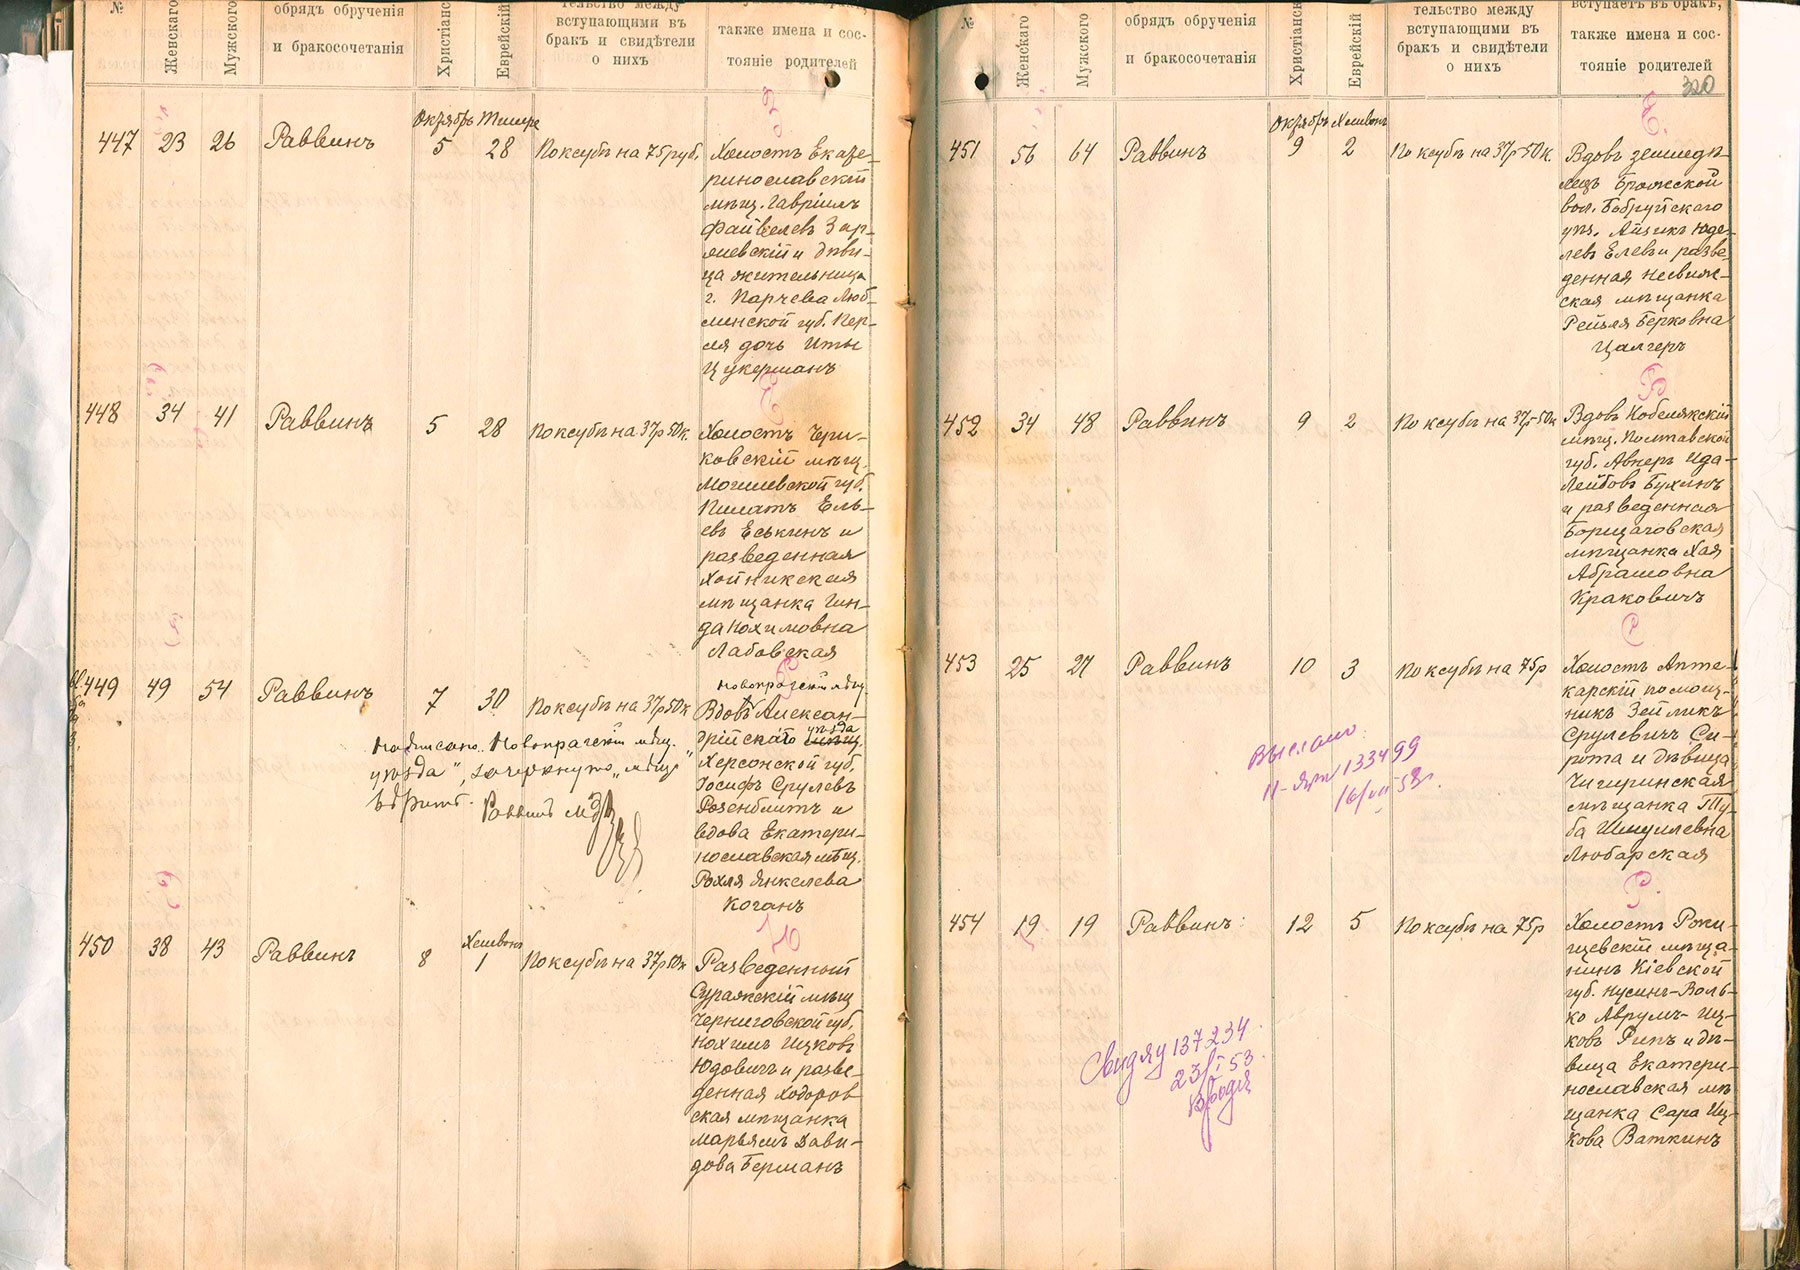 №
Женскаго
Мужского
обрядъ обрученія
и бракосочетанія
Христіанс
Еврейскій
тельство между
вступающими въ
бракъ и свидѣтели
о нихъ
также имена и сос-
тояніе родителей
447 23 26 Раввинъ
Октябрь Тишре
5 28
По ксубѣ на 75 руб.
Холостъ Екате-
ринославскій
мѣщ. Гавріилъ
Файвелевъ Зар-
и дѣви-
ца жительница
г. Парчева Люб-
линской губ. Пер-
ля дочь Иты
Цукерманъ
448 34 41 Раввинъ 5 28 По ксубѣ на 37р 50к.
Холостъ Чери-
ковскій мѣщ.
Могилевской губ.
Ель-
евъ Еськинъ и
разведенная
Хойникская
мѣщанка Гин-
да Нохимовна
Лабовская
449 49 54 Раввинъ 7 30 По ксубѣ на 37р 50к
Новопражскій мѣщ.
Вдовъ Алексан-
дрійскаго уѣзда
мѣщ.
Херсонской губ.
Іосифъ Срулевъ
Розенблитъ и
вдова Екатери-
нославская мѣщ.
Рохля Янкелева
Коганъ
Надписано „Новопражскій мѣщ.
уѣзда", зачеркнуто „мѣщ."
вѣрить.
Раввинъ
450 38 43 Раввинъ 8
Хешвонъ
1
По ксубѣ на 37р 50к
Разведенный
Суражскій мѣщ
Черниговской губ.
Нохимъ Ицковъ
Юдовичъ и разве-
денная Ходоров-
ская мѣщанка
Марьямъ Дави-
дова Берманъ
№
Женскаго
Мужского
обрядъ обрученія
и бракосочетанія
Христіанск
Еврейскій
тельство между
вступающими въ
бракъ и свидѣтели
о нихъ
вступаетъ въ бракъ,
также имена и сос-
тояніе родителей
320
451 56 64 Раввинъ
Октябрь Хешвонъ
9 2
По ксубѣ на 37р-50к.
Вдовъ земледѣ-
лецъ Брожской
вол. Бобруйскаго
уѣз. Айзикъ Юде-
левъ Елевъ и разве-
денная Несвиж-
ская мѣщанка
Рейзля Берковна
Цалгеръ
452 34 48 Раввинъ 9 2 По ксубѣ на 37р-50к
Вдовъ Кобелякскій
мѣщ. Полтавской
губ. Авнеръ Ида-
Лейбовъ Бухинъ
и разведенная
Борщаговская
мѣщанка Хая
Абрамовна
Краковичъ
453 25 27 Раввинъ 10 3 По ксубѣ на 75р
Холостъ Апте-
карскій помощ-
никъ Зейликъ
Срулевичъ Си-
рота и дѣвица
Чигиринская
мѣщанка Ту-
ба Шмулевна
Любарская
Выслано
133499
454 19 19 Раввинъ 12 5 По ксубѣ на 75р
Холостъ Роки-
щевскій мѣща-
нинъ Кіевской
губ. Нусинъ-Воль-
ко Аврумъ-Иц-
ковъ Рипъ и дѣ-
вица Екатери-
нославская мѣ-
щанка Сара Иц-
кова Ваткинъ
137234
53